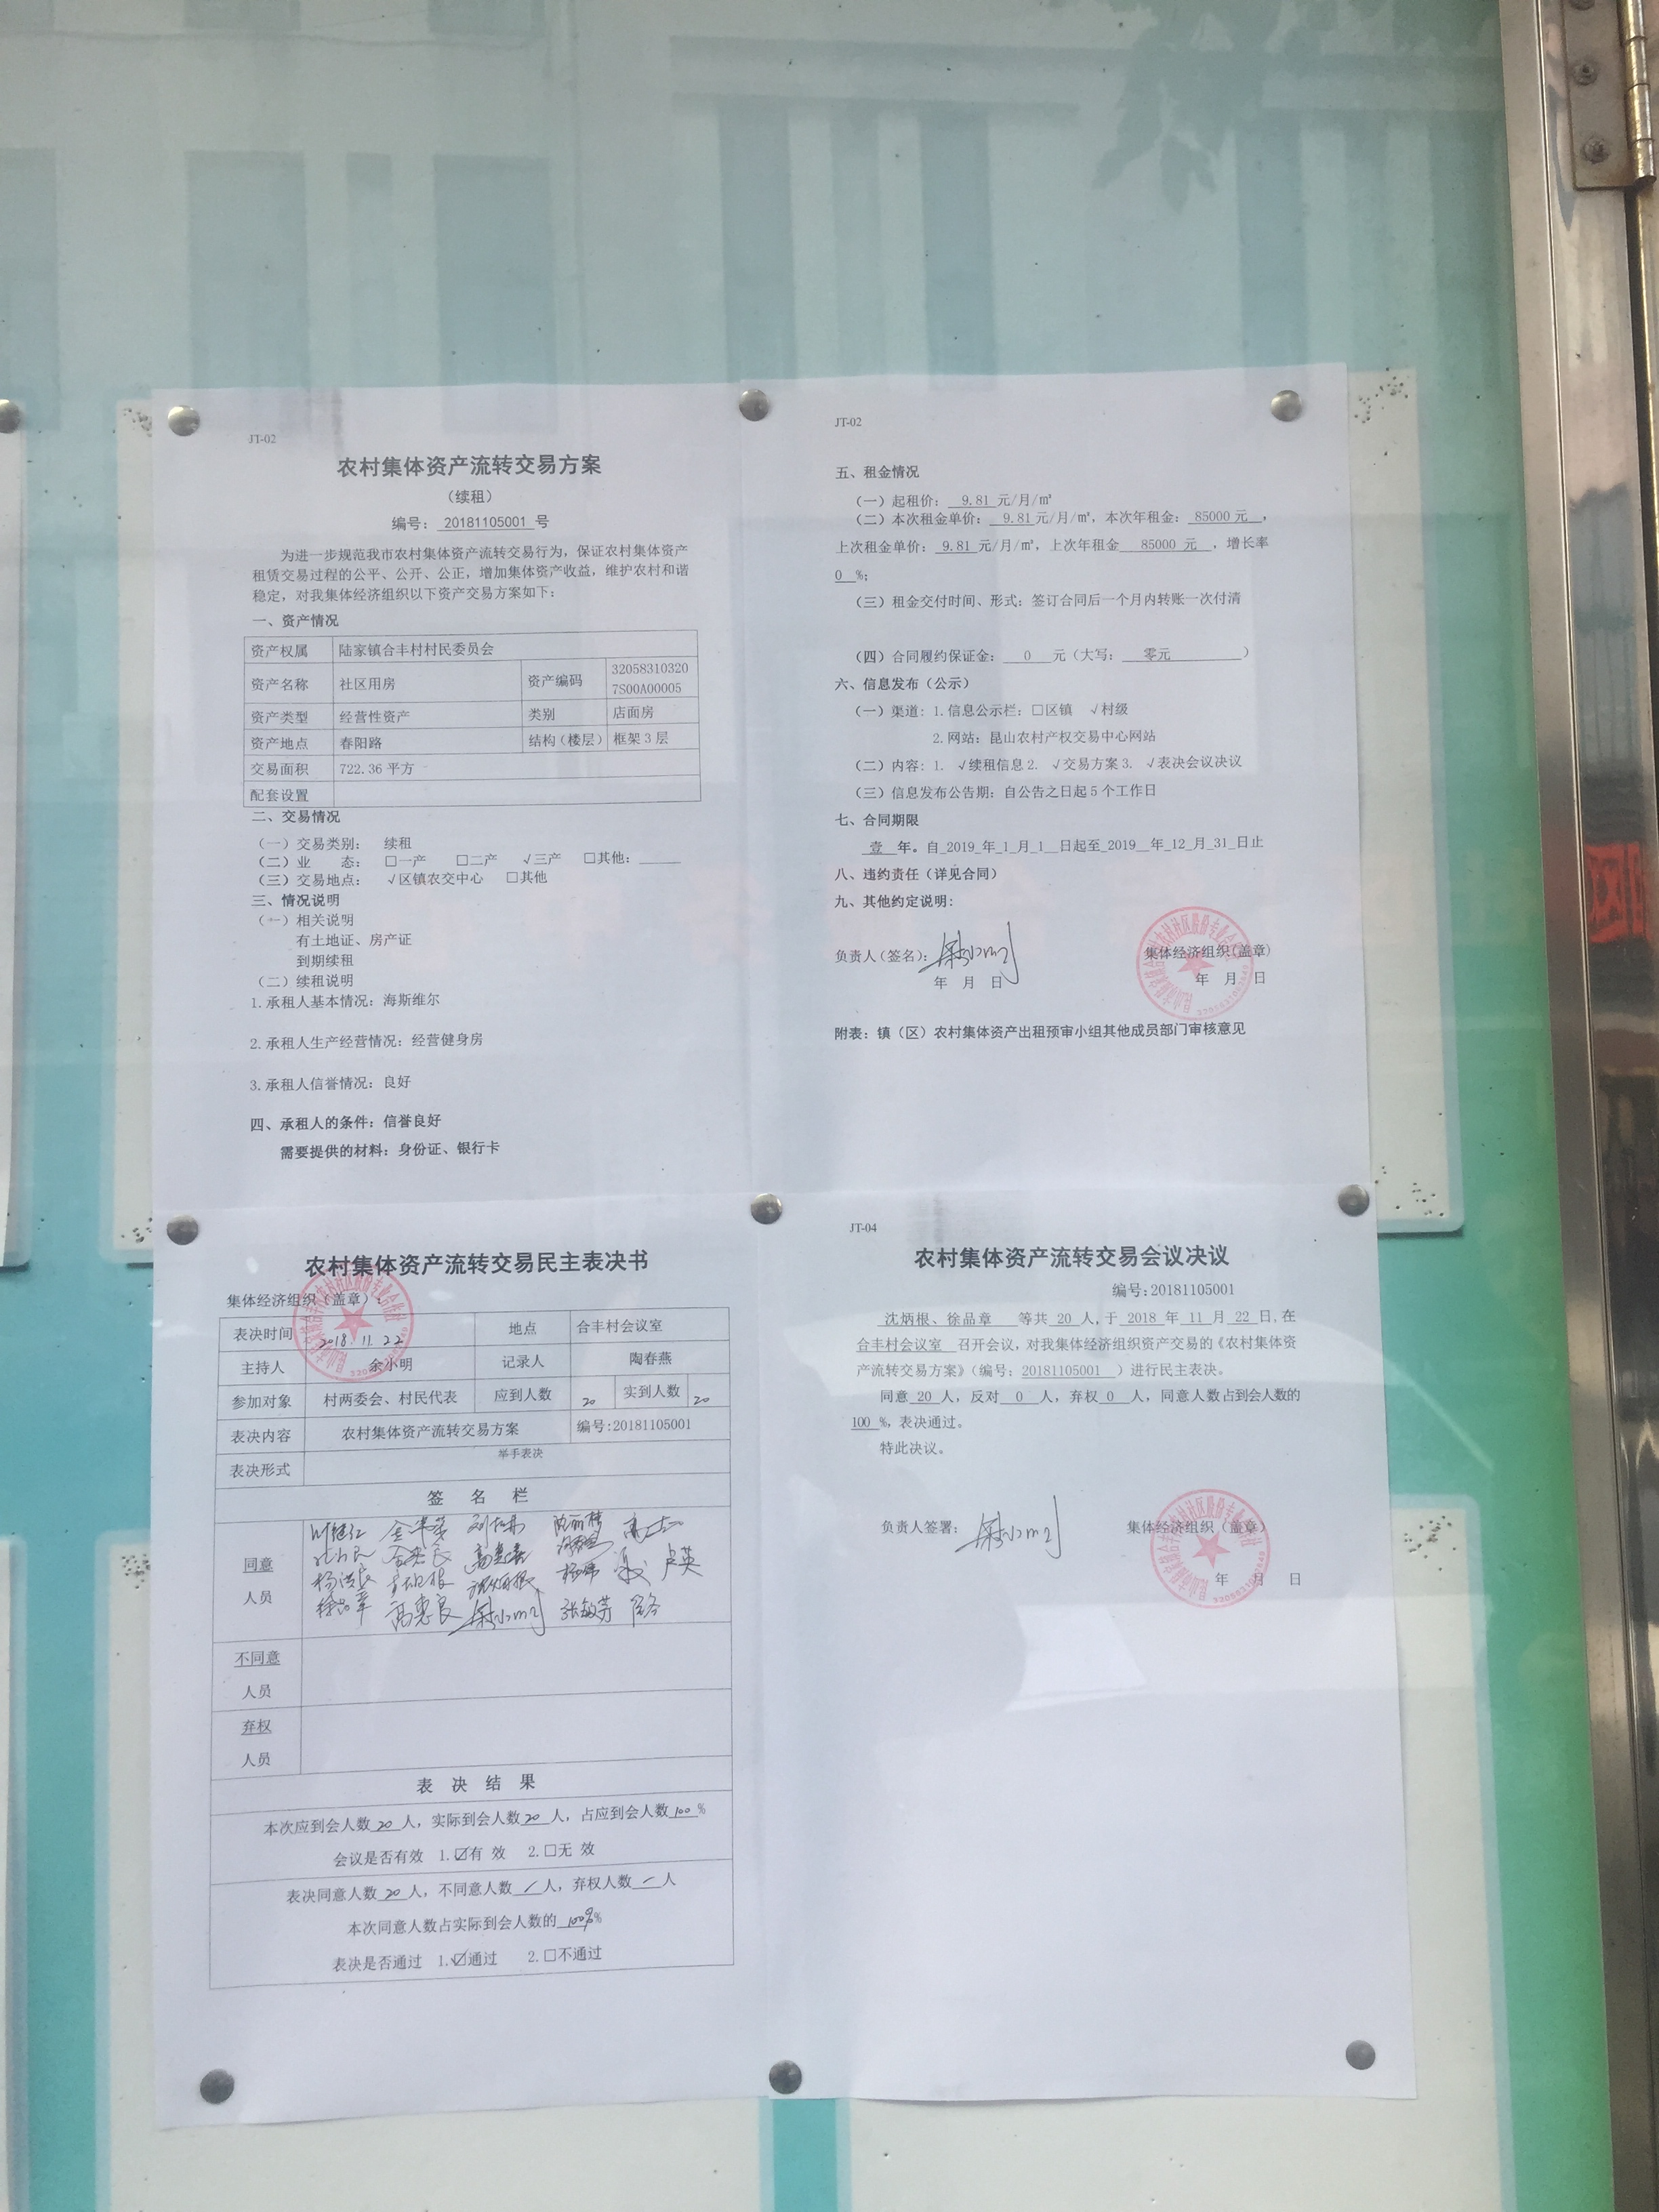 JT-02
农村集体资产流转交易方案
（续租）
编号： 20181105001 号
为进一步规范我市农村集体资产流转交易行为，保证农村集体资产
租赁交易过程的公平、公开、公正，增加集体资产收益，维护农村和谐
稳定，对我集体经济组织以下资产交易方案如下：
一、资产情况
资产权属 陆家镇合丰村村民委员会
资产名称 社区用房 资产编码 32058310320
7S00A00005
资产类型 经营性资产 类别 店面房
资产地点 春阳路 结构（楼层） 框架3层
交易面积 722.36平方
配套设置
二、交易情况
（一）交易类别： 续租
（二）业 态： □一产 □二产 √三产 □其他：
（三）交易地点： √区镇农交中心 □其他
三、情况说明
（一）相关说明
有土地证、房产证
到期续租
（二）续租说明
1.承租人基本情况：海斯维尔
2.承租人生产经营情况：经营健身房
3.承租人信誉情况：良好
四、承租人的条件：信誉良好
需要提供的材料：身份证、银行卡
JT-02
五、租金情况
（一）起租价： 9.81 元/月/㎡
（二）本次租金单价： 9.81 元/月/㎡，本次年租金： 85000 元 ，
上次租金单价： 9.81 元/月/㎡，上次年租金 85000 元 ，增长率
0 %；
（三）租金交付时间、形式：签订合同后一个月内转账一次付清
（四）合同履约保证金： 0 元（大写： 零元 ）
六、信息发布（公示）
（一）渠道：1.信息公示栏：□区镇 √村级
2.网站：昆山农村产权交易中心网站
（二）内容：1. √续租信息2. √交易方案3. √表决会议决议
（三）信息发布公告期：自公告之日起5个工作日
七、合同期限
壹 年。自 2019 年 1 月 1 日起至 2019 年 12 月 31 日止
八、违约责任（详见合同）
九、其他约定说明：
负责人（签名）： 集体经济组织（盖章）
年 月 日 年 月 日
附表：镇（区）农村集体资产出租预审小组其他成员部门审核意见
农村集体资产流转交易民主表决书
集体经济组织（盖章）：
表决时间 2018.11.22 地点 合丰村会议室
主持人 余小明 记录人 陶春燕
参加对象 村两委会、村民代表 应到人数 20 实到人数 20
表决内容 农村集体资产流转交易方案 编号:20181105001
表决形式 举手表决
签 名 栏
同意
人员
高惠良 张敏芳 卢英
徐品章
不同意
人员
弃权
人员
表 决 结 果
本次应到会人数 20 人，实际到会人数 20 人，占应到会人数 100 %
会议是否有效 1.☑有 效 2.□无 效
表决同意人数 20 人，不同意人数 / 人，弃权人数 / 人
本次同意人数占实际到会人数的 100% %
表决是否通过 1.☑通过 2.□不通过
JT-04
农村集体资产流转交易会议决议
编号:20181105001
沈炳根、徐品章 等共 20 人，于 2018 年 11 月 22 日，在
合丰村会议室 召开会议，对我集体经济组织资产交易的《农村集体资
产流转交易方案》（编号：20181105001 ）进行民主表决。
同意 20 人，反对 0 人，弃权 0 人，同意人数占到会人数的
100 %，表决通过。
特此决议。
负责人签署： 集体经济组织（盖章）
年 月 日